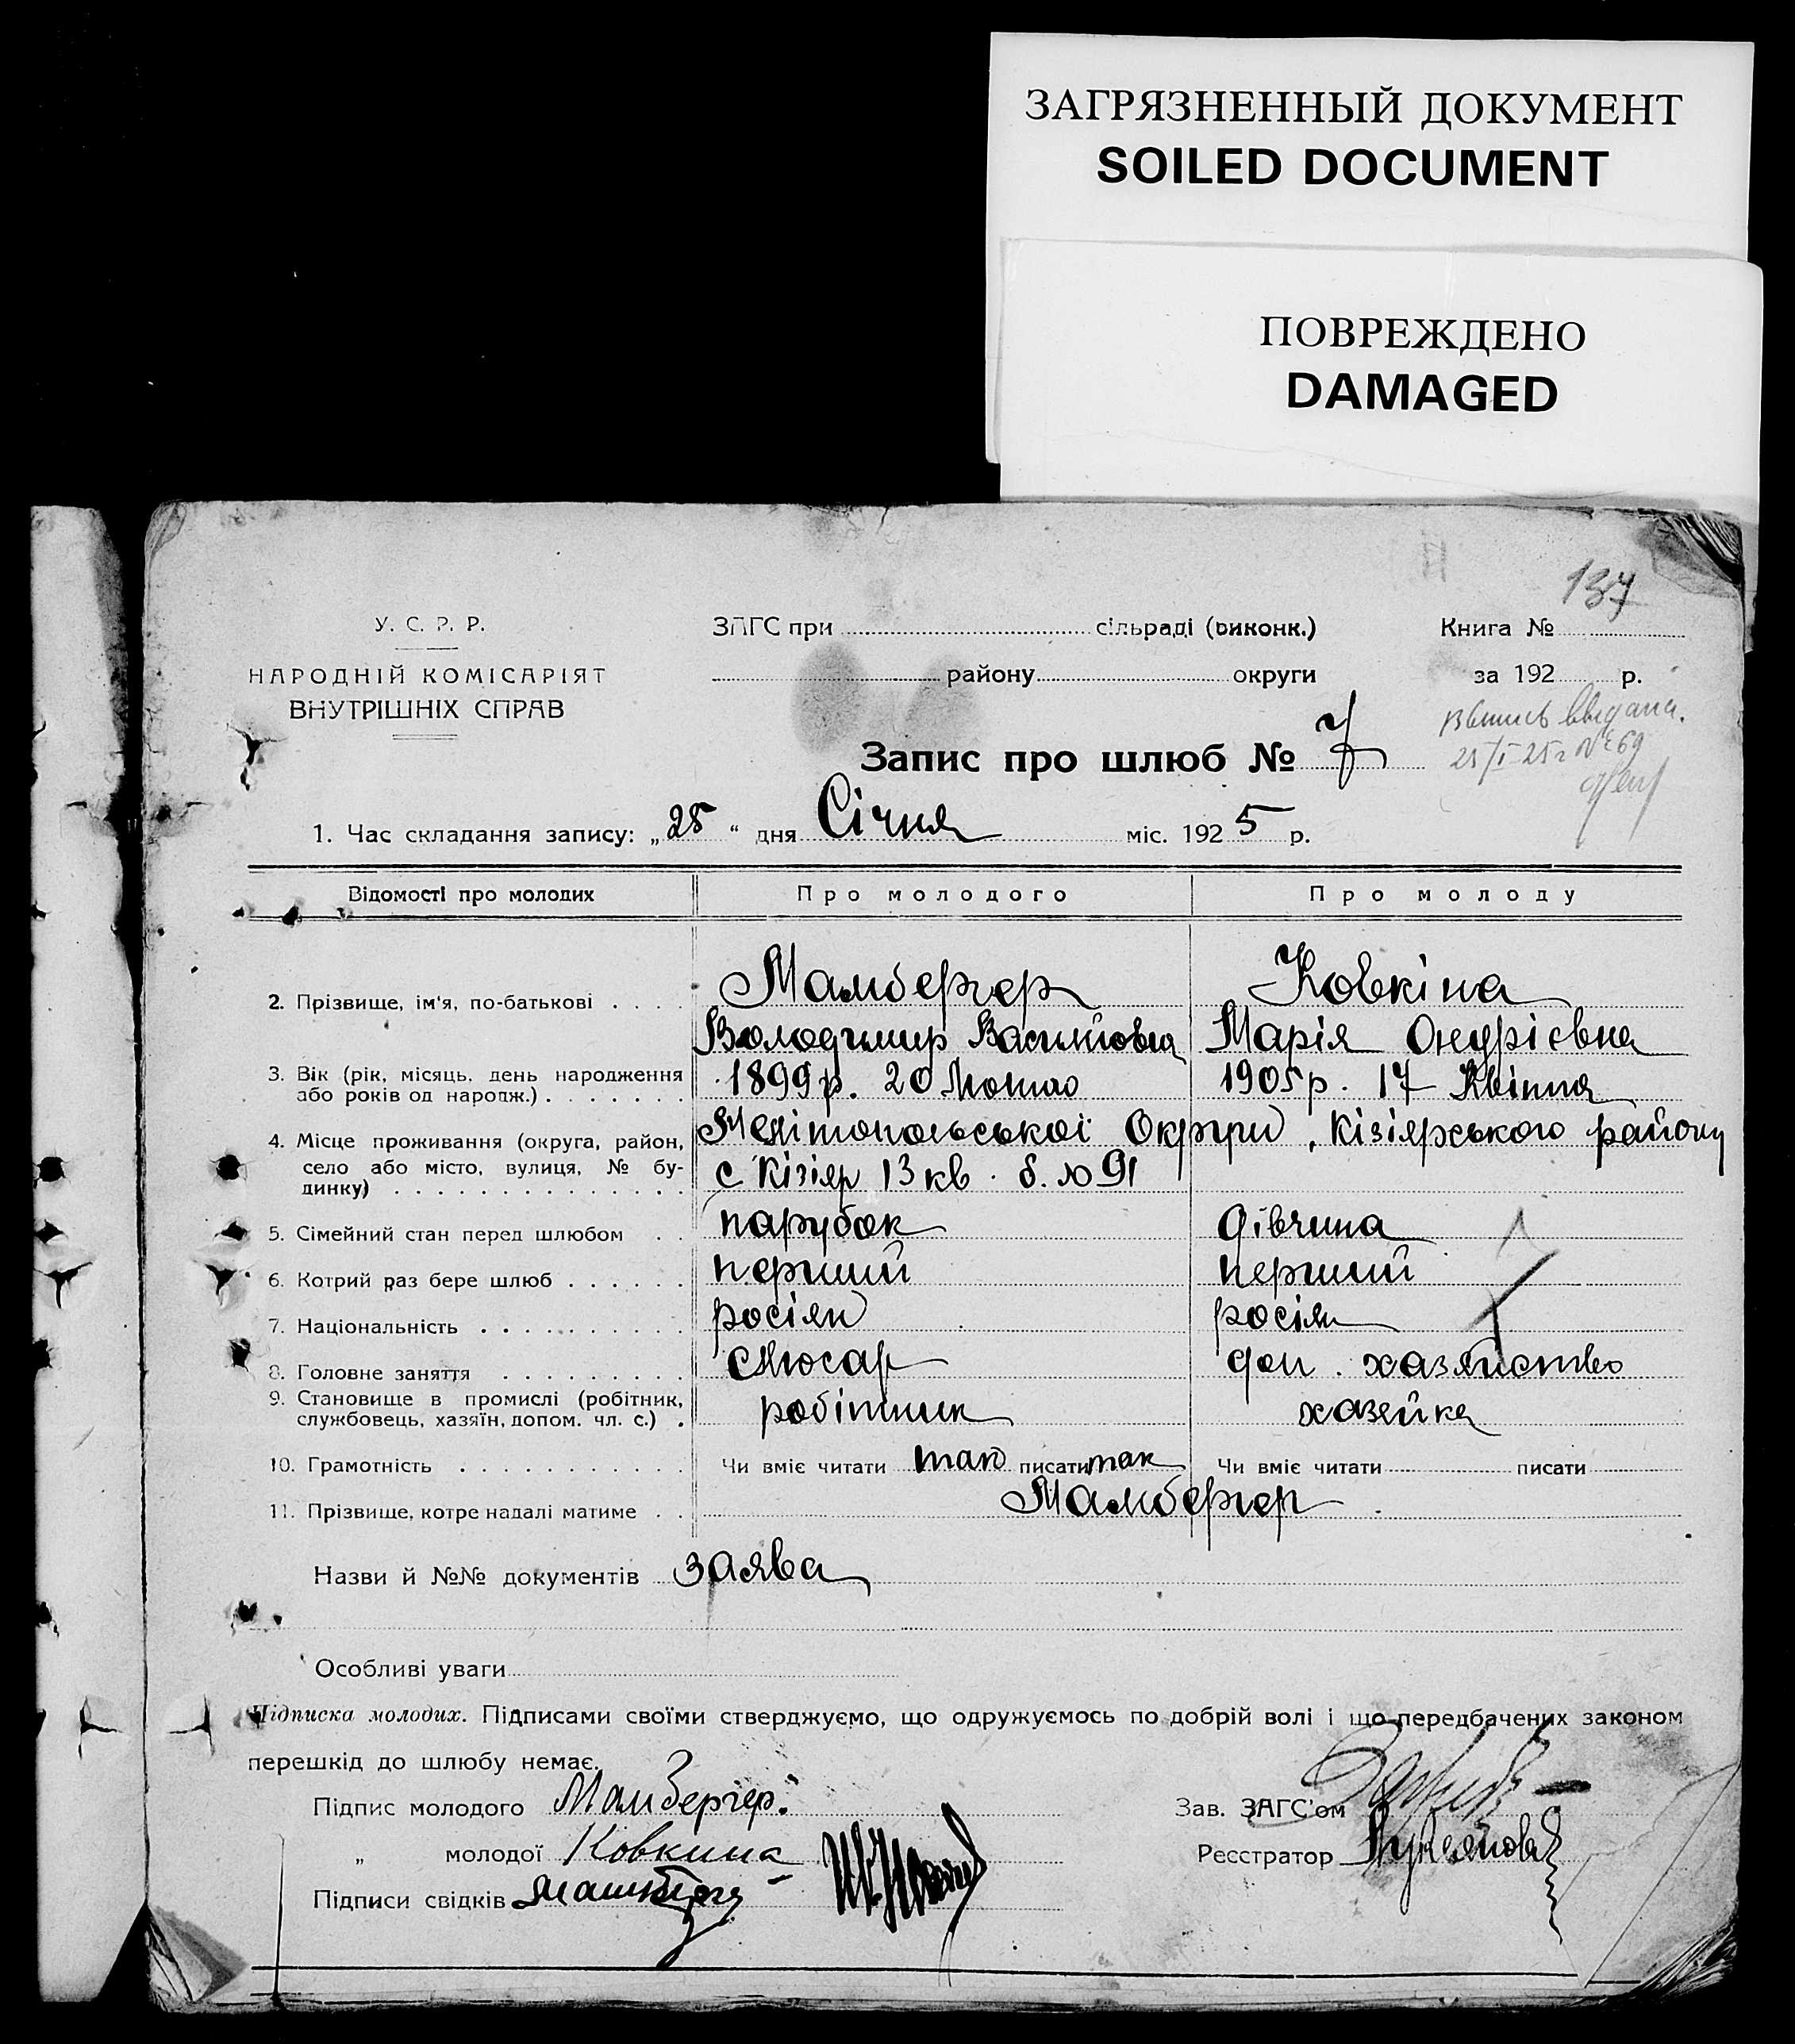 ЗАГРЯЗНЕННЫЙ ДОКУМЕНТ
SOILED DOCUMENT
ПОВРЕЖДЕНО
DAMAGED
137
У. С. Р. Р.
НАРОДНІЙ КОМІСАРІЯТ
ВНУТРІШНІХ СПРАВ
ЗАГС при сільраді (виконк.)
району округи
Книга №
за 192 р.
выдана.
25/I-25 г № 69
Запис про шлюб № 7
1. Час складання запису: „25“ дня Січня міс. 1925 р.
Відомості про молодих Про молодого Про молоду
2. Прізвище, ім'я, по-батькові Мамбергер Ковкіна
Володимир Васильович Марія Ондрієвна
3. Вік (рік, місяць, день народження або років од народж.) 1899 р. 20 Лютого 1905 р. 17 Квітня
4. Місце проживання (округа, район, село або місто, вулиця, № будинку) Мелітопольської Округи, Кізіярського району
с Кізіяр 13 кв. б. № 91
5. Сімейний стан перед шлюбом парубок дівчина
6. Котрий раз бере шлюб перший перший
7. Національність росіян росіян
8. Головне заняття слюсар дом. хазяйство
9. Становище в промислі (робітник, службовець, хазяїн, допом. чл. с.) робітник хазейка
10. Грамотність Чи вміє читати так писати так Чи вміє читати писати
11. Прізвище, котре надалі матиме Мамбергер
Назви й №№ документів заява
Особливі уваги
Підписка молодих. Підписами своїми стверджуємо, що одружуємось по добрій волі і що передбачених законом
перешкід до шлюбу немає.
Підпис молодого Мамбергер.
Зав. ЗАГС'ом
„ молодої Ковкина
Реєстратор
Підписи свідків